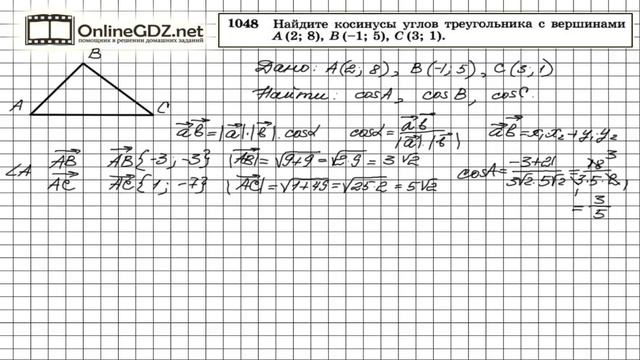 OnlineGDZ.net
помощник в решении домашних заданий
1048 Найдите косинусы углов треугольника с вершинами
A (2; 8), B (−1; 5), C (3; 1).
B
A
C
Дано: A(2; 8), B(-1; 5), C(3; 1)
Найти: cosA, cosB, cosC.
ab=|a|·|b|·cosα cosα=ab/|a|·|b| ab=x₁x₂+y₁y₂
∠A AB AB{-3; -3} |AB|=√9+9=√2·9=3√2 cosA=-3+21/3√2·5√2=18/3·5·2=
AC AC{1; -7} |AC|=√1+49=√25·2=5√2
=3/5